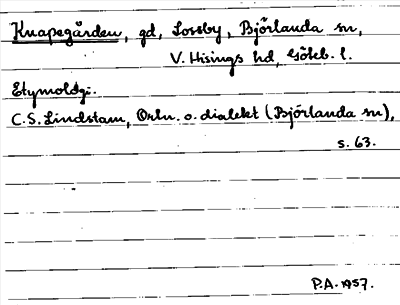 Knapegården, gd, Lossby, Björlanda sn,
V. Hisings hd, Göteb. l.
Etymologi.
C.S. Lindstam, Ortn. o. dialekt (Björlanda sn),
s. 63.
P.A. 1957.